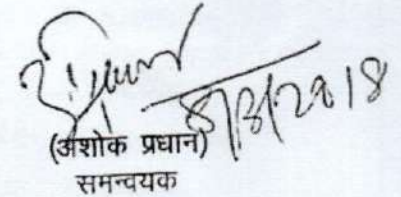 8/3/2018
(अशोक प्रधान)
समन्वयक